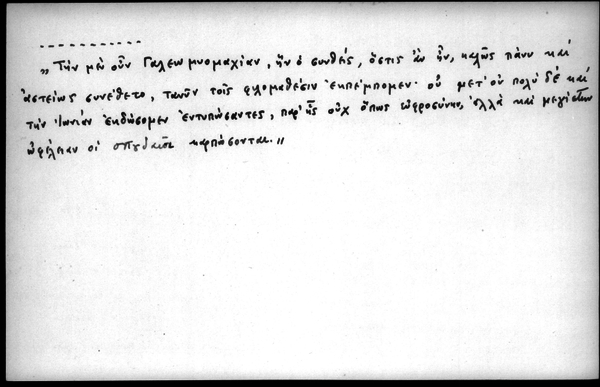 „Τὴν μὲν οὖν Γαλεωμυομαχίαν, ἣν ὁ συνθείς, ὅστις ἂν ἦν, καλῶς πάνυ καὶ
ἀστείως συνέθετο, τανῦν τοῖς φιλομαθέσιν ἐκπέμπομεν· οὐ μετ' οὐ πολὺ δέ καὶ
τὴν Ἰωνιὰν ἐκδώσομεν ἐντυπώσαντες, παρ' ἧς οὐχ ὅπως εὐφροσύνην, ἀλλὰ καὶ μεγίστην
ὠφέλειαν οἱ σπουδαῖοι καρπώσονται."